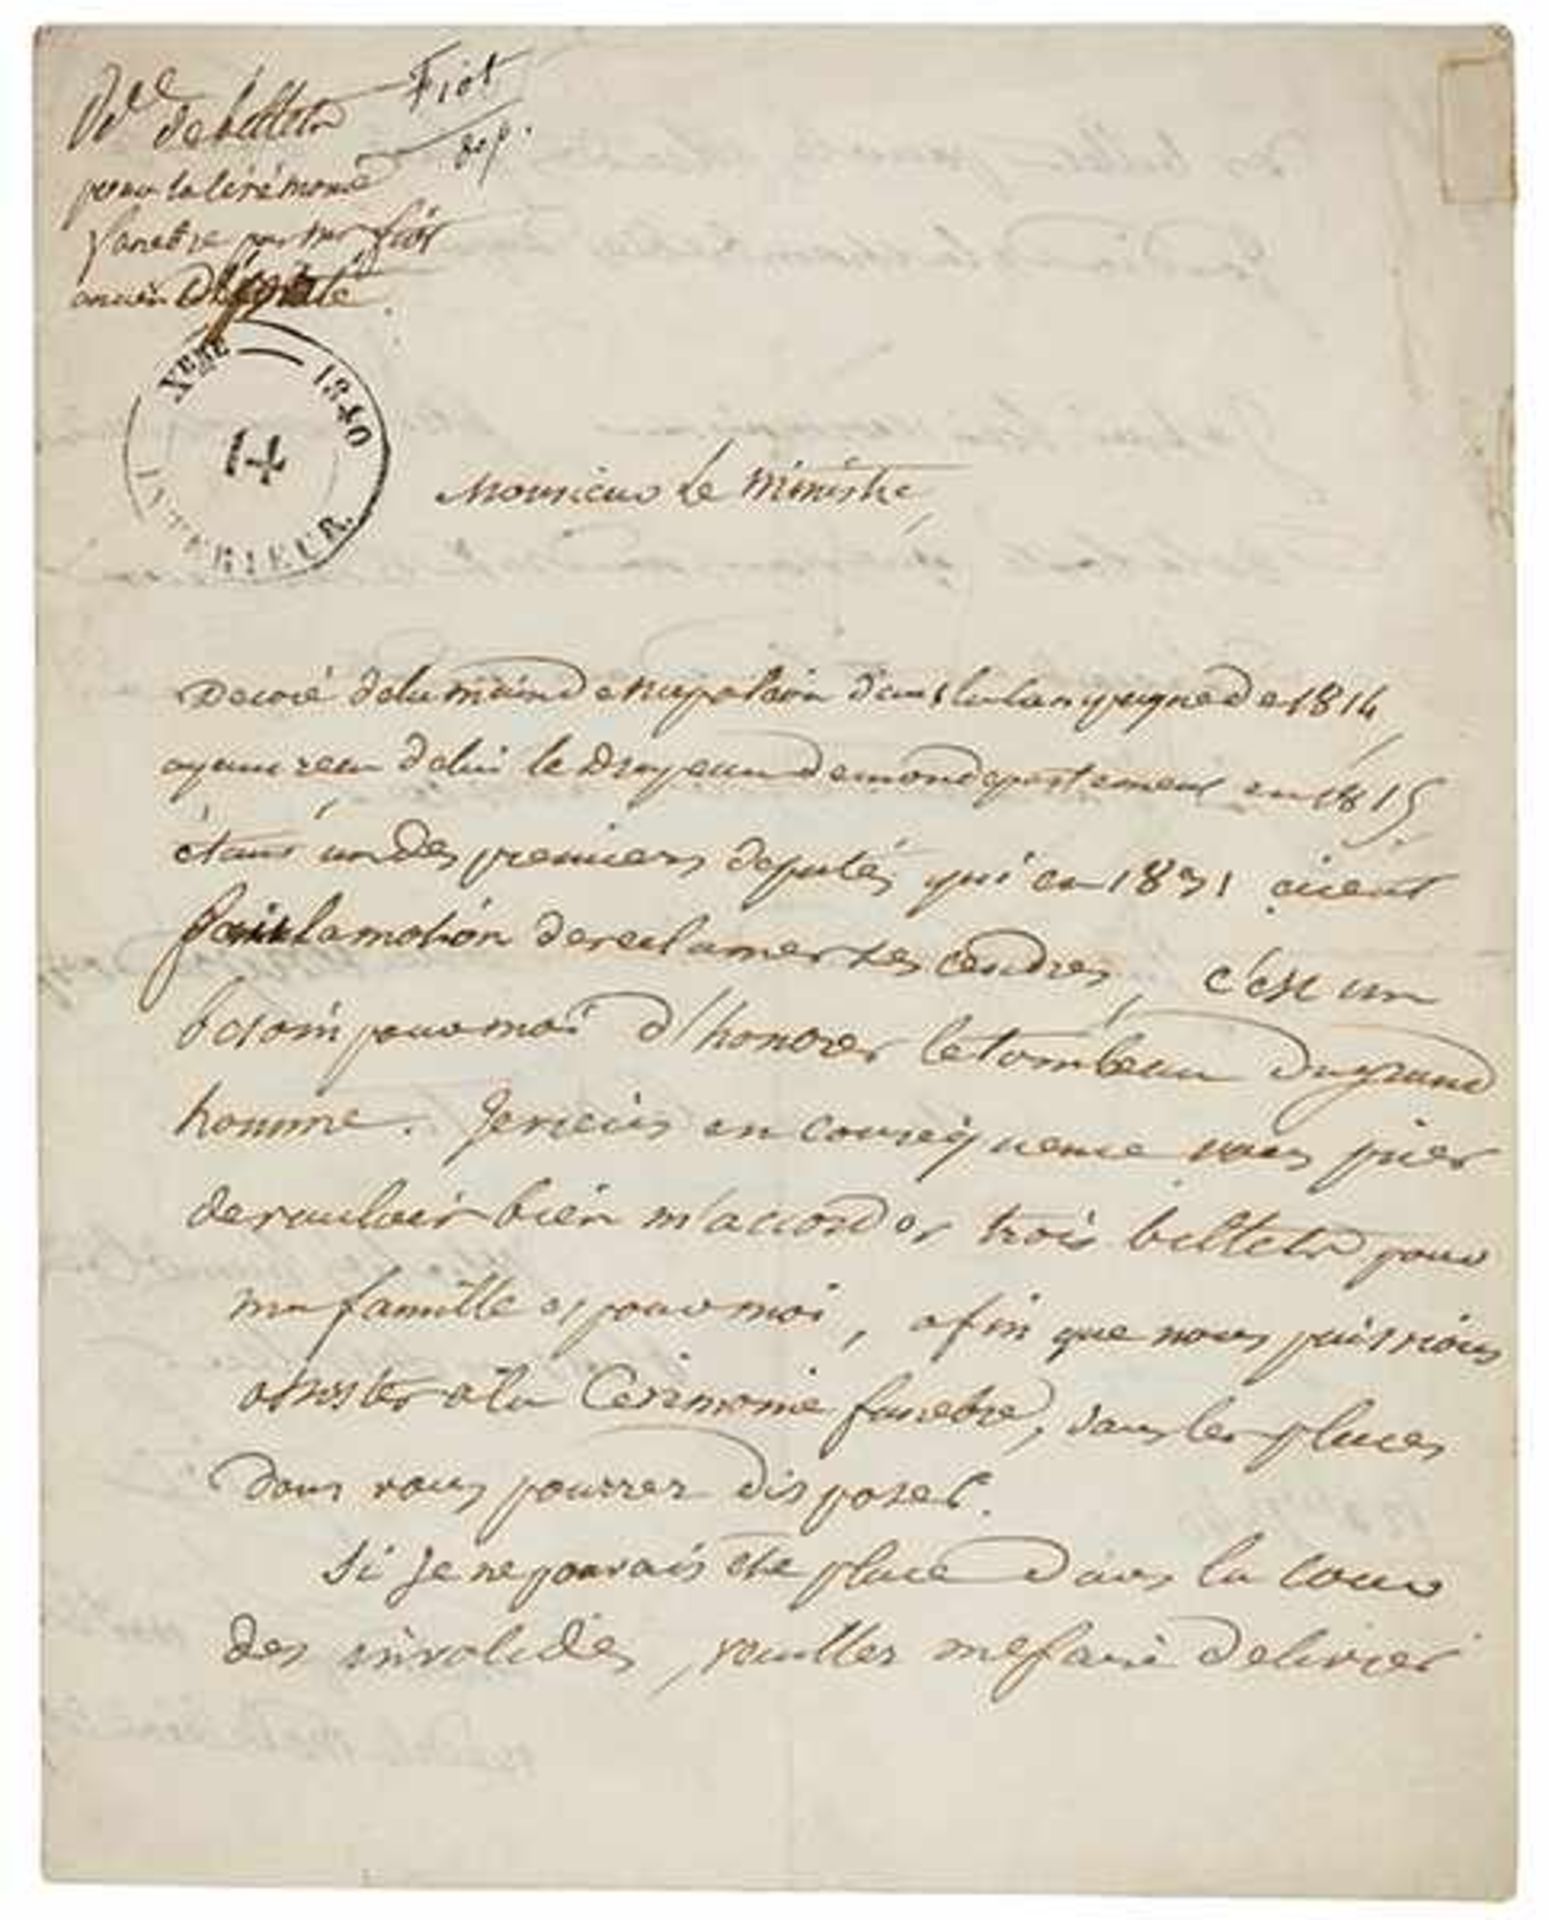 Dde de billets Fiot
dép.
pour la Cérémonie
funebre par Mr fiot
ancien Député
Xbre 1840
14
INTERIEUR.
Monsieur Le Ministre,
Decoré de la main de Napoléon dans la Campagne de 1814,
ayant reçu de lui le Drapeau de mon departement en 1815,
étant un des premiers deputés qui en 1831 aient
fait la motion de reclamer ses cendres, c'est un
besoin pour moi d'honorer le tombeau du grand
homme. Je viens en consequence vous prier
de vouloir bien m'accorder trois billets pour
ma famille et pour moi, afin que nous puissions
assister a la Cérémonie funebre, dans les places
dont vous pourrez disposer.
Si je ne pouvais etre placé dans la cour
des invalides, veuillez me faire delivrer